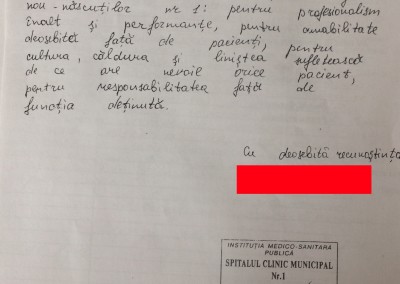 nou-născuților nr 1: pentru profesionalism
înalt și performanțe, pentru amabilitate
deosebită față de pacienți, pentru
cultura, căldura și liniștea sufletească
de ce are nevoie orice pacient,
pentru responsabilitatea față de
funcția deținută.
Cu deosebită recunoștință
INSTITUȚIA MEDICO-SANITARĂ
PUBLICĂ
SPITALUL CLINIC MUNICIPAL
Nr.1